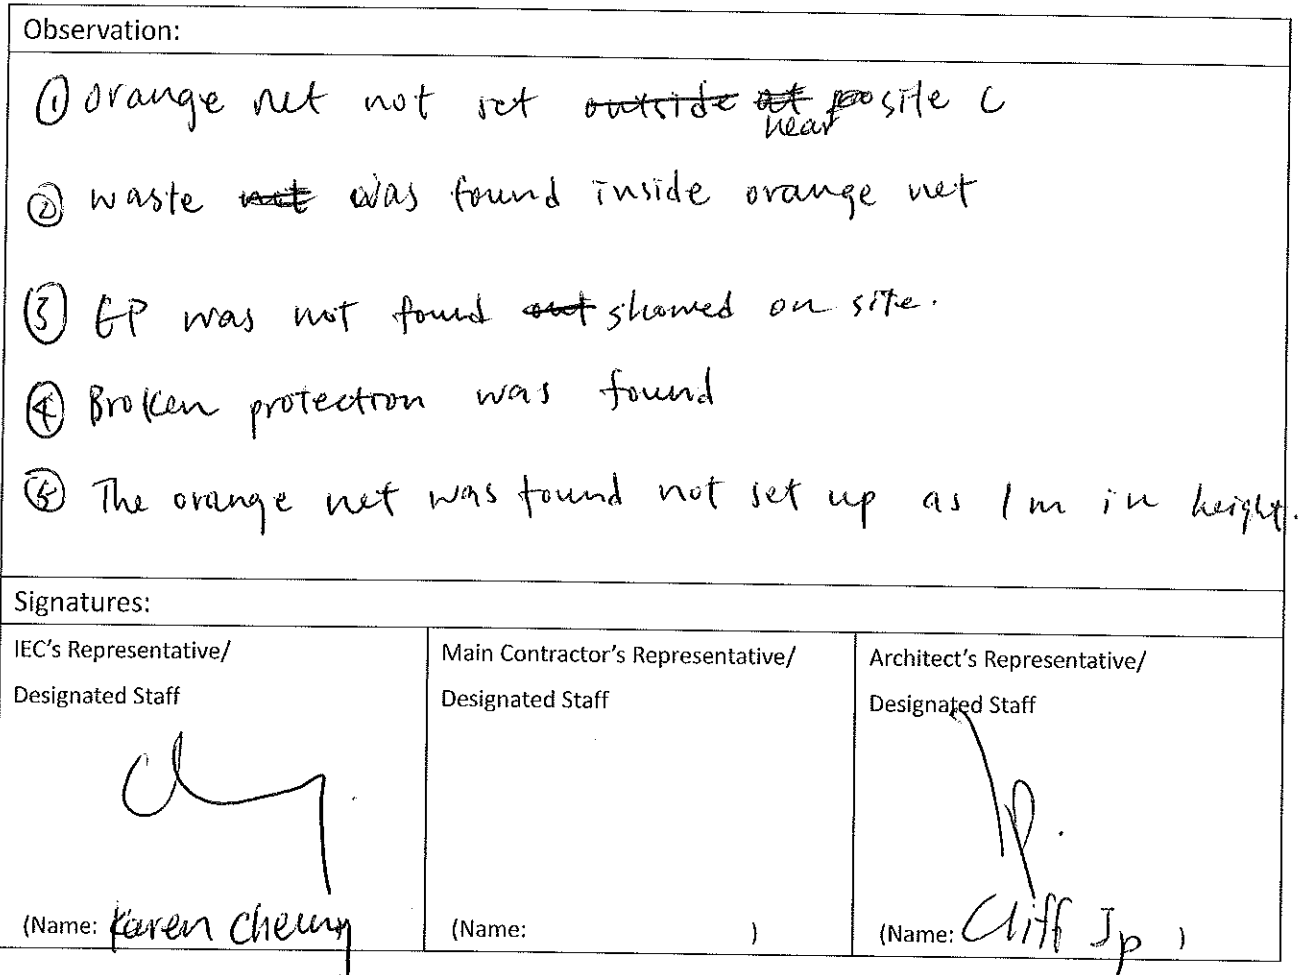 Observation:
① orange net not set near site C
② waste was found inside orange net
③ EP was not found showed on site.
④ Broken protection was found
⑤ The orange net was found not set up as 1m in height.
Signatures:
IEC's Representative/
Designated Staff
Main Contractor's Representative/
Designated Staff
Architect's Representative/
Designated Staff
(Name: Karen Cheung
(Name: )
(Name: Cliff Ip )